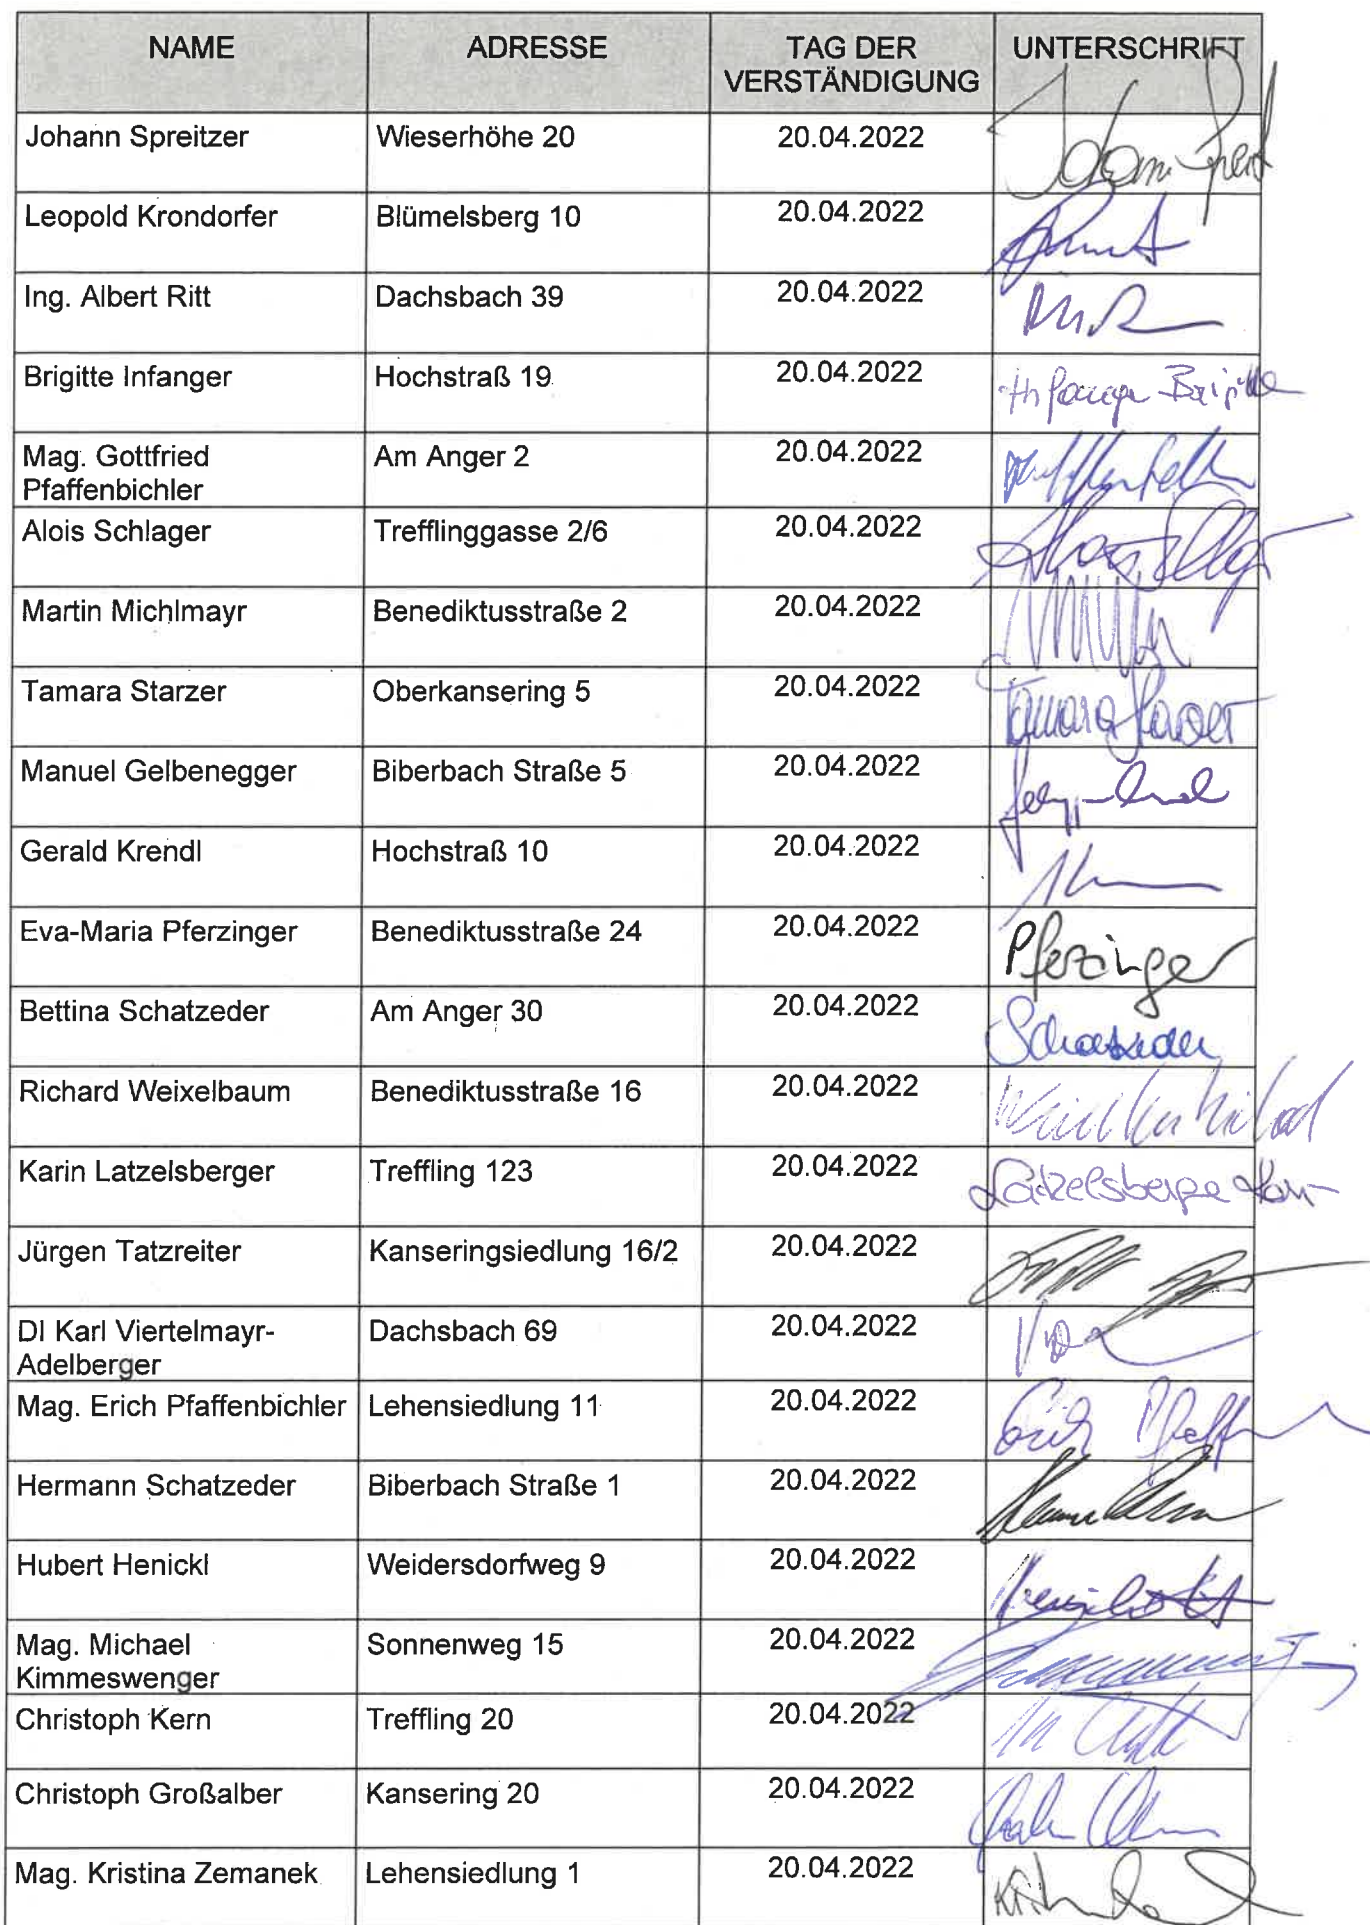 NAME ADRESSE TAG DER VERSTÄNDIGUNG UNTERSCHRIFT
Johann Spreitzer Wieserhöhe 20 20.04.2022 Johann
Leopold Krondorfer Blümelsberg 10 20.04.2022
Ing. Albert Ritt Dachsbach 39 20.04.2022
Brigitte Infanger Hochstraß 19 20.04.2022 Infanger Brigitte
Mag. Gottfried
Pfaffenbichler Am Anger 2 20.04.2022
Alois Schlager Trefflinggasse 2/6 20.04.2022
Martin Michlmayr Benediktusstraße 2 20.04.2022
Tamara Starzer Oberkansering 5 20.04.2022 Tamara Starzer
Manuel Gelbenegger Biberbach Straße 5 20.04.2022
Gerald Krendl Hochstraß 10 20.04.2022
Eva-Maria Pferzinger Benediktusstraße 24 20.04.2022 Pferzinger
Bettina Schatzeder Am Anger 30 20.04.2022 Schatzeder
Richard Weixelbaum Benediktusstraße 16 20.04.2022
Karin Latzelsberger Treffling 123 20.04.2022 Latzelsberger Karin
Jürgen Tatzreiter Kanseringsiedlung 16/2 20.04.2022
DI Karl Viertelmayr-
Adelberger Dachsbach 69 20.04.2022
Mag. Erich Pfaffenbichler Lehensiedlung 11 20.04.2022 Erich
Hermann Schatzeder Biberbach Straße 1 20.04.2022
Hubert Henickl Weidersdorfweg 9 20.04.2022
Mag. Michael
Kimmeswenger Sonnenweg 15 20.04.2022
Christoph Kern Treffling 20 20.04.2022
Christoph Großalber Kansering 20 20.04.2022
Mag. Kristina Zemanek Lehensiedlung 1 20.04.2022